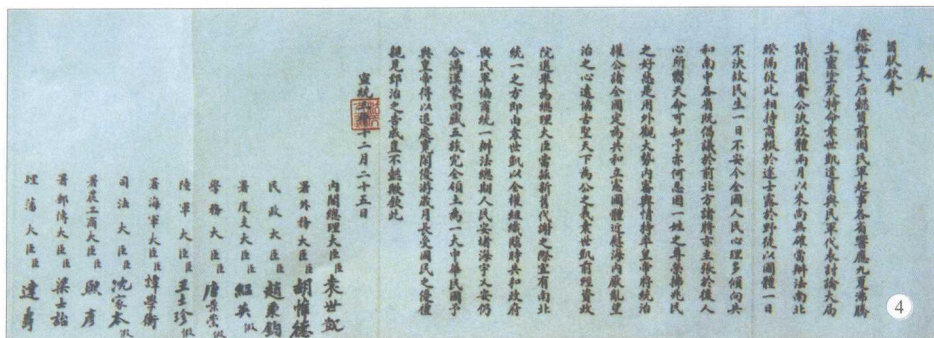 奉
旨朕欽奉
隆裕皇太后懿旨前因民軍起事各省響應九夏沸騰
生靈塗炭特命袁世凱遣員與民軍代表討論大局
議開國會公決政體兩月以來尚無確當辦法南北
暌隔彼此相持商輟於途士露於野徒以國體一日
不決故民生一日不安今全國人民心理多傾向共
和南中各省既倡議於前北方諸將亦主張於後人
心所嚮天命可知予亦何忍因一姓之尊榮拂兆民
之好惡是用外觀大勢內審輿情特率皇帝將統治
權公諸全國定為共和立憲國體近慰海內厭亂望
治之心遠協古聖天下為公之義袁世凱前經資政
院選舉為總理大臣當茲新舊代謝之際宜有南北
統一之方即由袁世凱以全權組織臨時共和政府
與民軍協商統一辦法總期人民安堵海宇乂安仍
合滿漢蒙回藏五族完全領土為一大中華民國予
與皇帝得以退處寬閒優游歲月長受國民之優禮
親見郅治之告成豈不懿歟欽此
宣統三年十二月二十五日
內閣總理大臣臣袁世凱
署外務大臣臣胡惟德
民政大臣臣趙秉鈞
署度支大臣臣紹英假
學務大臣臣唐景崇假
陸軍大臣臣王士珍假
署海軍大臣臣譚學衡
司法大臣臣沈家本假
署農工商大臣臣熙彥
署郵傳大臣臣梁士詒
理藩大臣臣達壽
4